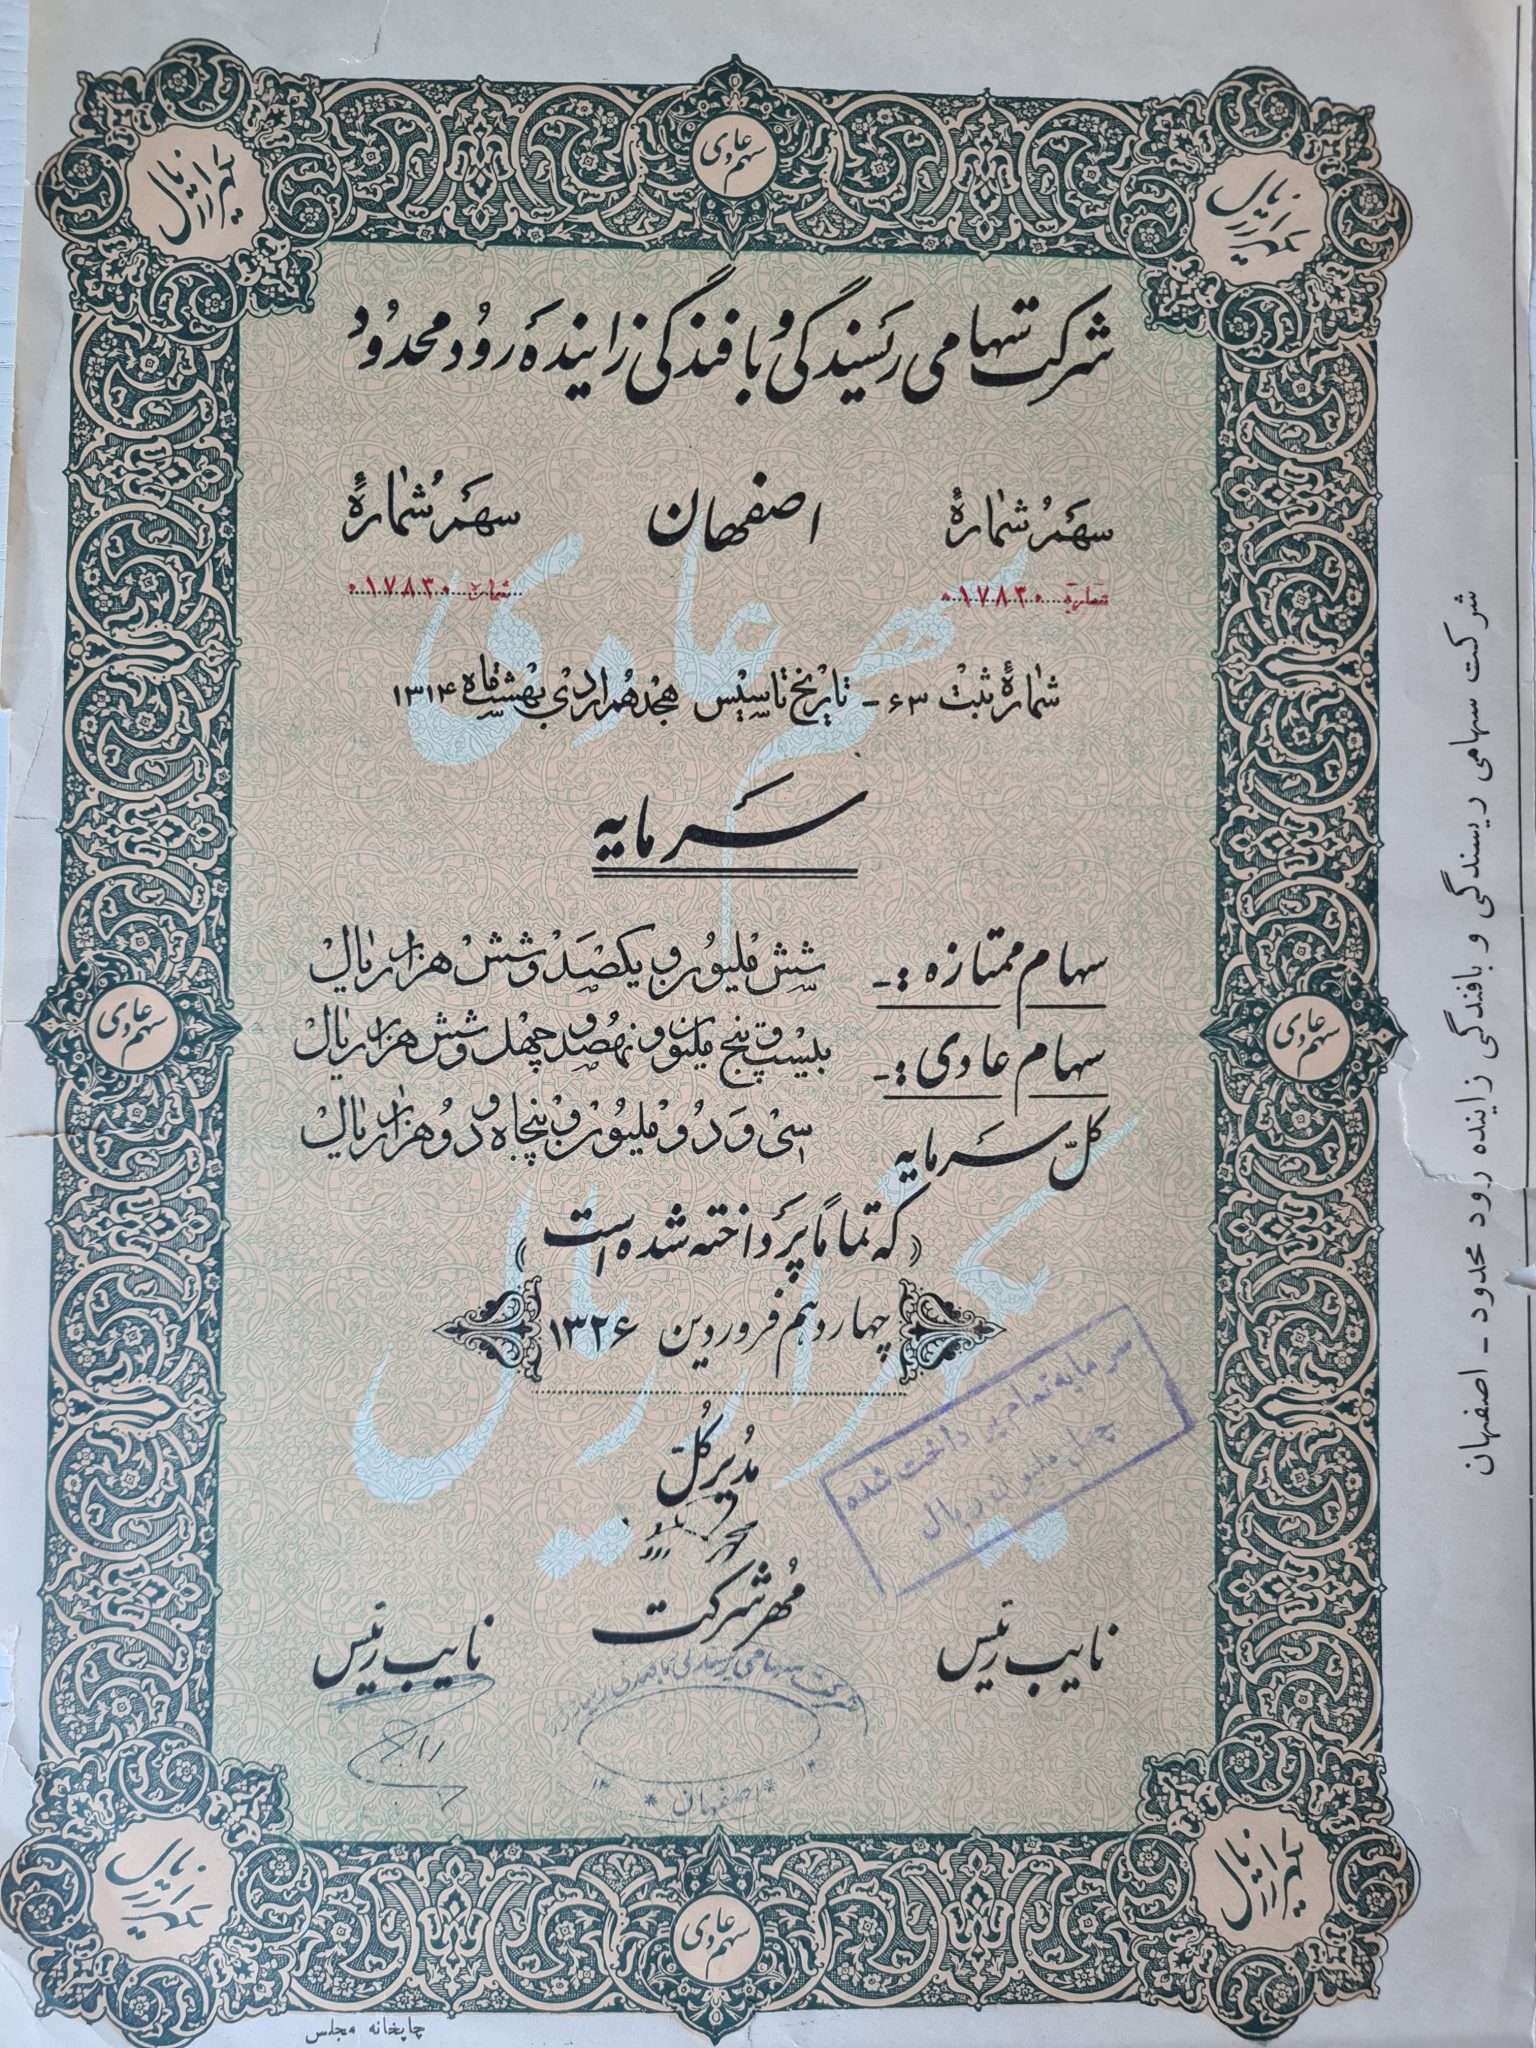 سهم عادی
یکهزار ریال
یکهزار ریال
شرکت سهامی ریسندگی و بافندگی زاینده رود محدود
سهم شمارهٔ اصفهان سهم شمارهٔ
شماره ۰۱۷۸۳۰ شماره ۰۱۷۸۳۰
شمارهٔ ثبت ۶۳ - تاریخ تاسیس هجدهم اردی بهشت ماه ۱۳۱۴
سرمایه
سهام ممتازه :- شش ملیون و یکصد و شش هزار ریال
سهام عادی :- بیست و پنج ملیون و نهصد و چهل و شش هزار ریال
کلّ سرمایه سی و دو ملیون و پنجاه و دو هزار ریال
((که تماماً پرداخته شده است))
چهاردهم فروردین ۱۳۲۶
سهم عادی
سهم عادی
سهم عادی یکهزار ریال
سرمایه تمام پرداخت شده
چهل ملیون ریال
مدیر کلّ
مهر شرکت
نایب رئیس نایب رئیس
شرکت سهامی ریسندگی و بافندگی زاینده رود
* اصفهان *
یکهزار ریال
یکهزار ریال
سهم عادی
چاپخانه مجلس
شرکت سهامی ریسندگی و بافندگی زاینده رود محدود - اصفهان